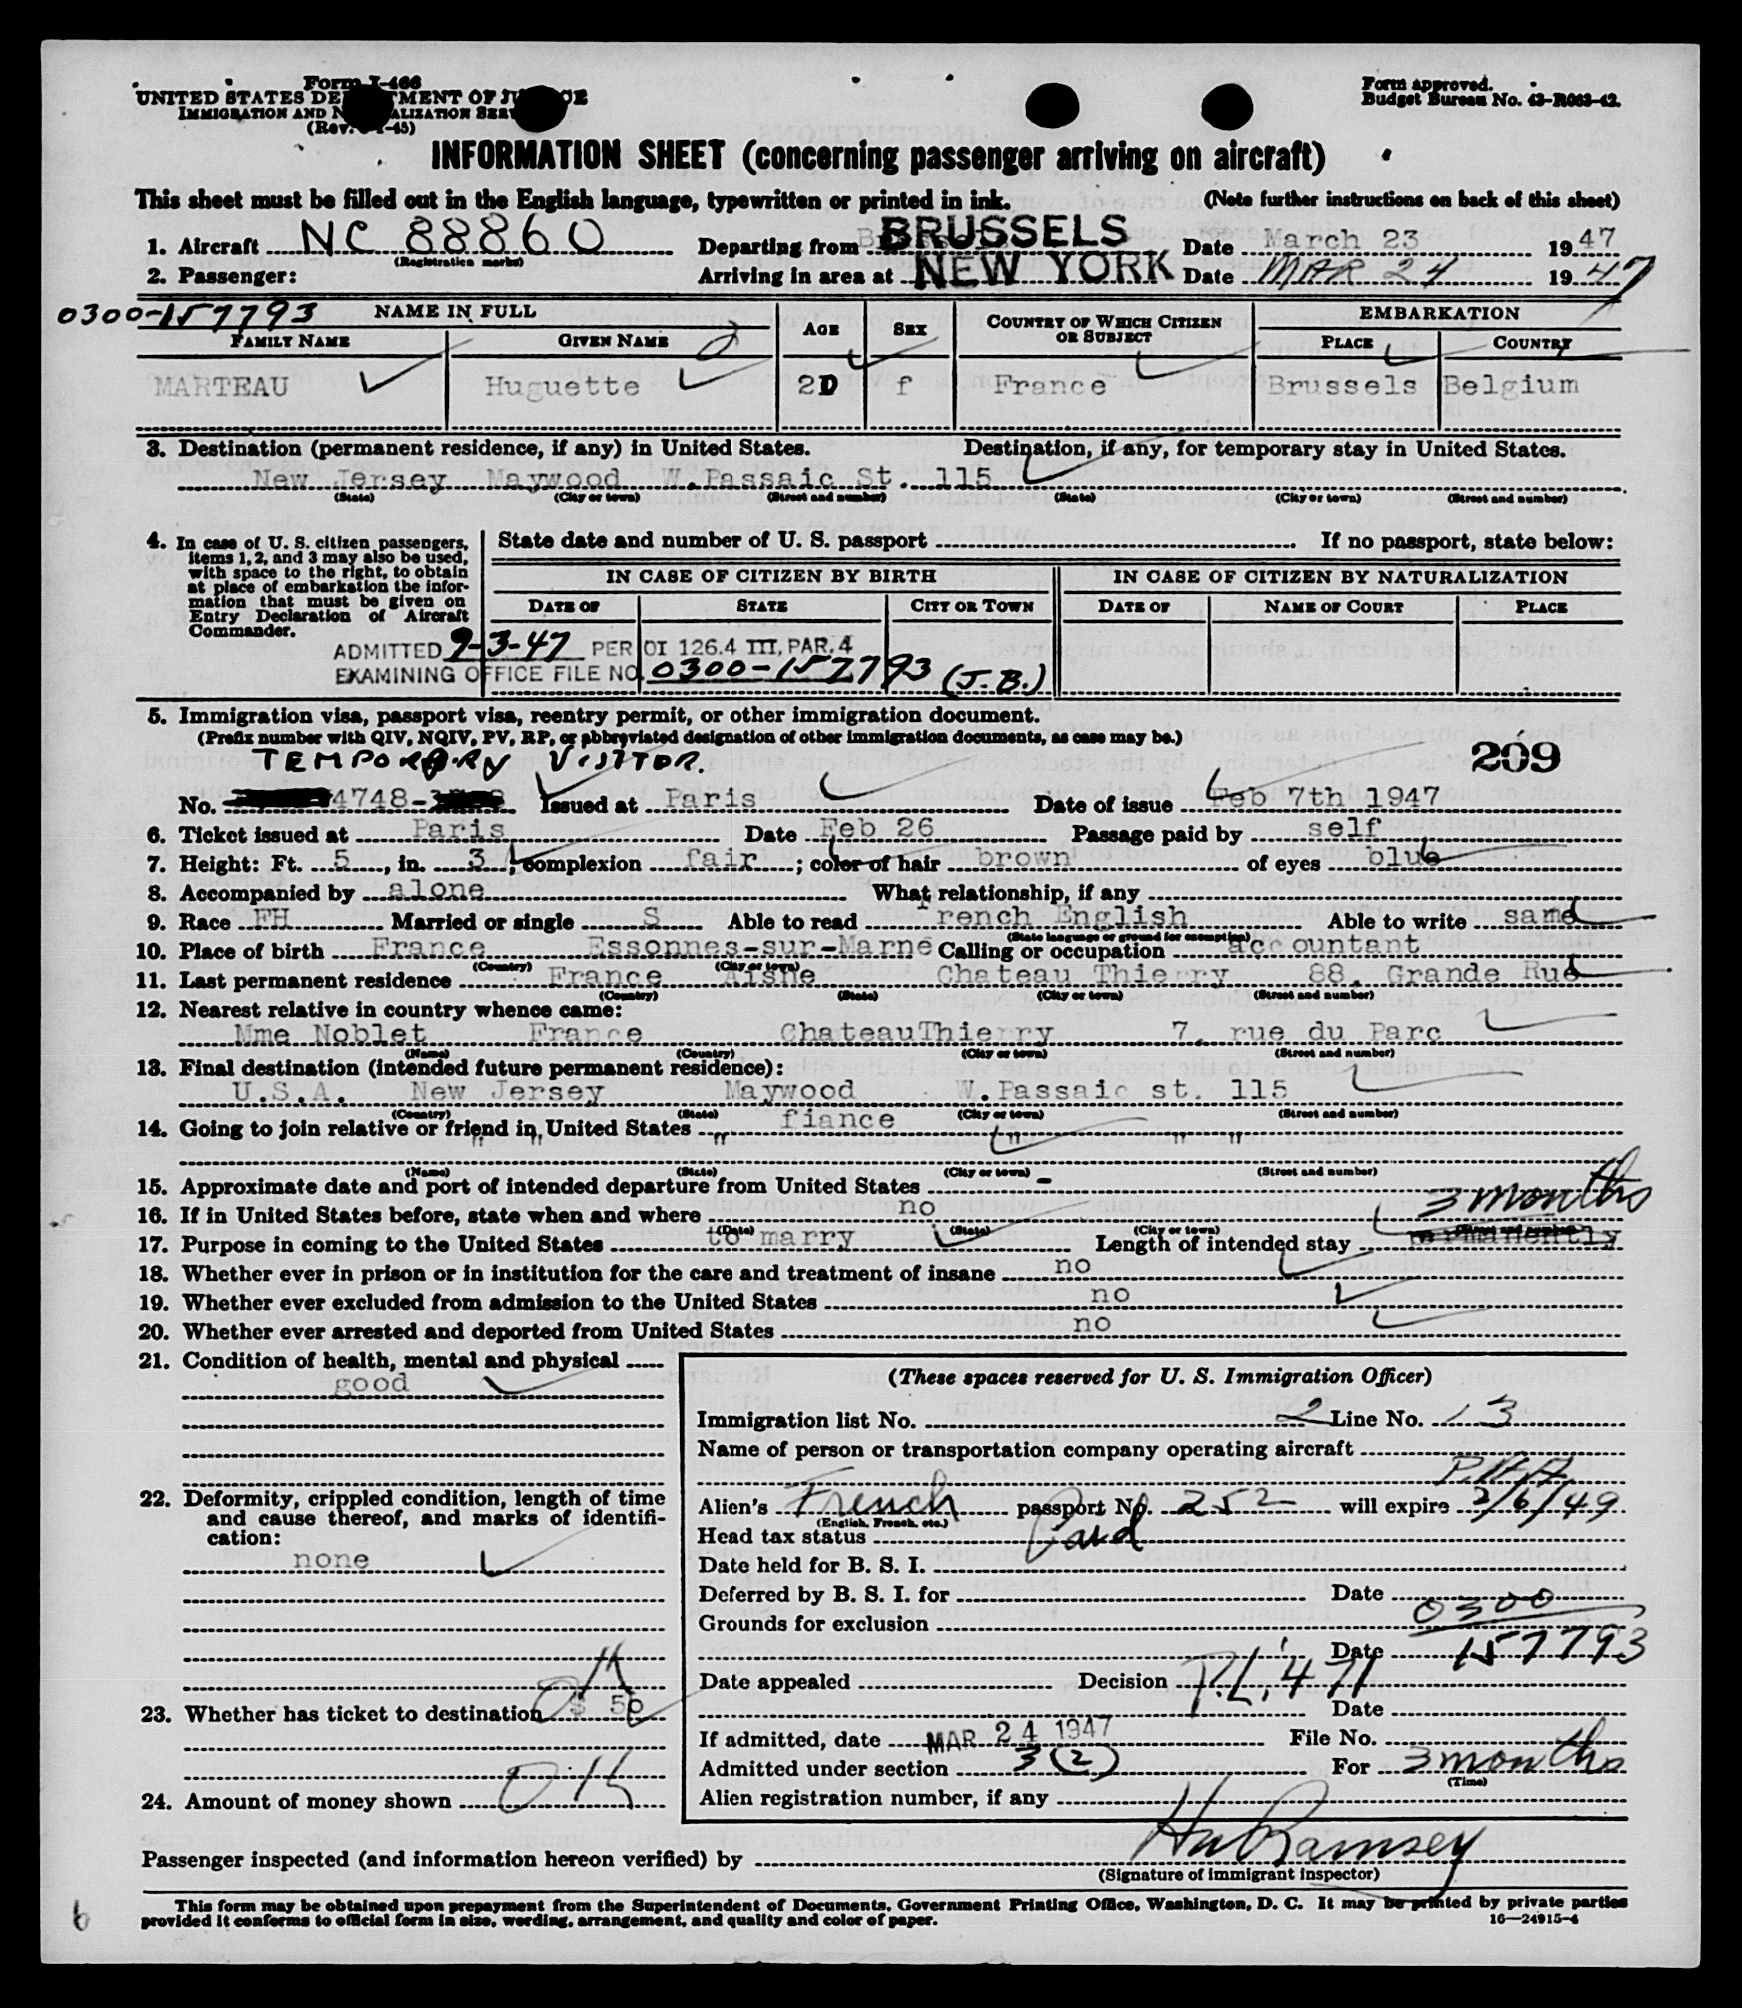 Form I-466
UNITED STATES DE TMENT OF JU CE
IMMIGRATION AND N ALIZATION SER
(Rev. -45)
Form approved.
Budget Bureau No. 43-R063-42.
INFORMATION SHEET (concerning passenger arriving on aircraft)
This sheet must be filled out in the English language, typewritten or printed in ink. (Note further instructions on back of this sheet)
1. Aircraft NC 88860 Departing from BRUSSELS Date March 23 1947
(Registration marks)
2. Passenger: Arriving in area at NEW YORK Date MAR 24 1947
0300-157793 NAME IN FULL AGE SEX COUNTRY OF WHICH CITIZEN OR SUBJECT EMBARKATION
FAMILY NAME GIVEN NAME PLACE COUNTRY
MARTEAU Huguette f France Brussels Belgium
3. Destination (permanent residence, if any) in United States. Destination, if any, for temporary stay in United States.
New Jersey Maywood W.Passaic St. 115
(State) (City or town) (Street and number) (State) (City or town) (Street and number)
4. In case of U. S. citizen passengers, items 1, 2, and 3 may also be used, with space to the right, to obtain at place of embarkation the information that must be given on Entry Declaration of Aircraft Commander.
State date and number of U. S. passport If no passport, state below:
IN CASE OF CITIZEN BY BIRTH IN CASE OF CITIZEN BY NATURALIZATION
DATE OF STATE CITY OR TOWN DATE OF NAME OF COURT PLACE
ADMITTED 9-3-47 PER OI 126.4 III, PAR. 4
EXAMINING OFFICE FILE NO. 0300-157793 (J.B.)
5. Immigration visa, passport visa, reentry permit, or other immigration document.
(Prefix number with QIV, NQIV, PV, RP, or abbreviated designation of other immigration documents, as case may be.)
TEMPORARY VISITOR. 209
No. 4748- Issued at Paris Date of issue Feb 7th 1947
6. Ticket issued at Paris Date Feb 26 Passage paid by self
7. Height: Ft. 5, in. 3; complexion fair; color of hair brown of eyes blue
8. Accompanied by alone What relationship, if any
9. Race FH Married or single S Able to read French English Able to write same
(State language or ground for exemption)
10. Place of birth France Essonnes-sur-Marne Calling or occupation accountant
(Country) (City or town)
11. Last permanent residence France Aisne Chateau Thierry 88, Grande Rue
(Country) (State) (City or town) (Street and number)
12. Nearest relative in country whence came:
Mme Noblet France ChateauThierry 7, rue du Parc
(Name) (Country) (City or town) (Street and number)
13. Final destination (intended future permanent residence):
U.S.A. New Jersey Maywood W.Passaic st. 115
(Country) (State) (City or town) (Street and number)
14. Going to join relative or friend in United States fiance
" " " " " "
(Name) (State) (City or town) (Street and number)
15. Approximate date and port of intended departure from United States -
16. If in United States before, state when and where no
(Date) (State) (City or town) (Street and number)
17. Purpose in coming to the United States to marry Length of intended stay 3 months permanently
18. Whether ever in prison or in institution for the care and treatment of insane no
19. Whether ever excluded from admission to the United States no
20. Whether ever arrested and deported from United States no
21. Condition of health, mental and physical
good
22. Deformity, crippled condition, length of time and cause thereof, and marks of identification:
none
23. Whether has ticket to destination OK $ 50
24. Amount of money shown OK
(These spaces reserved for U. S. Immigration Officer)
Immigration list No. 2 Line No. 13
Name of person or transportation company operating aircraft
P.A.A.
Alien's French passport No. 252 will expire 2/6/49
(English, French, etc.)
Head tax status Paid
Date held for B. S. I.
Deferred by B. S. I. for Date
Grounds for exclusion 0300
Date 157793
Date appealed Decision P.L. 471
Date
If admitted, date MAR 24 1947 File No.
Admitted under section 3(2) For 3 months
(Time)
Alien registration number, if any
Passenger inspected (and information hereon verified) by Ramsey
(Signature of immigrant inspector)
This form may be obtained upon prepayment from the Superintendent of Documents, Government Printing Office, Washington, D. C. It may be printed by private parties
provided it conforms to official form in size, wording, arrangement, and quality and color of paper.
16—24915-4
6